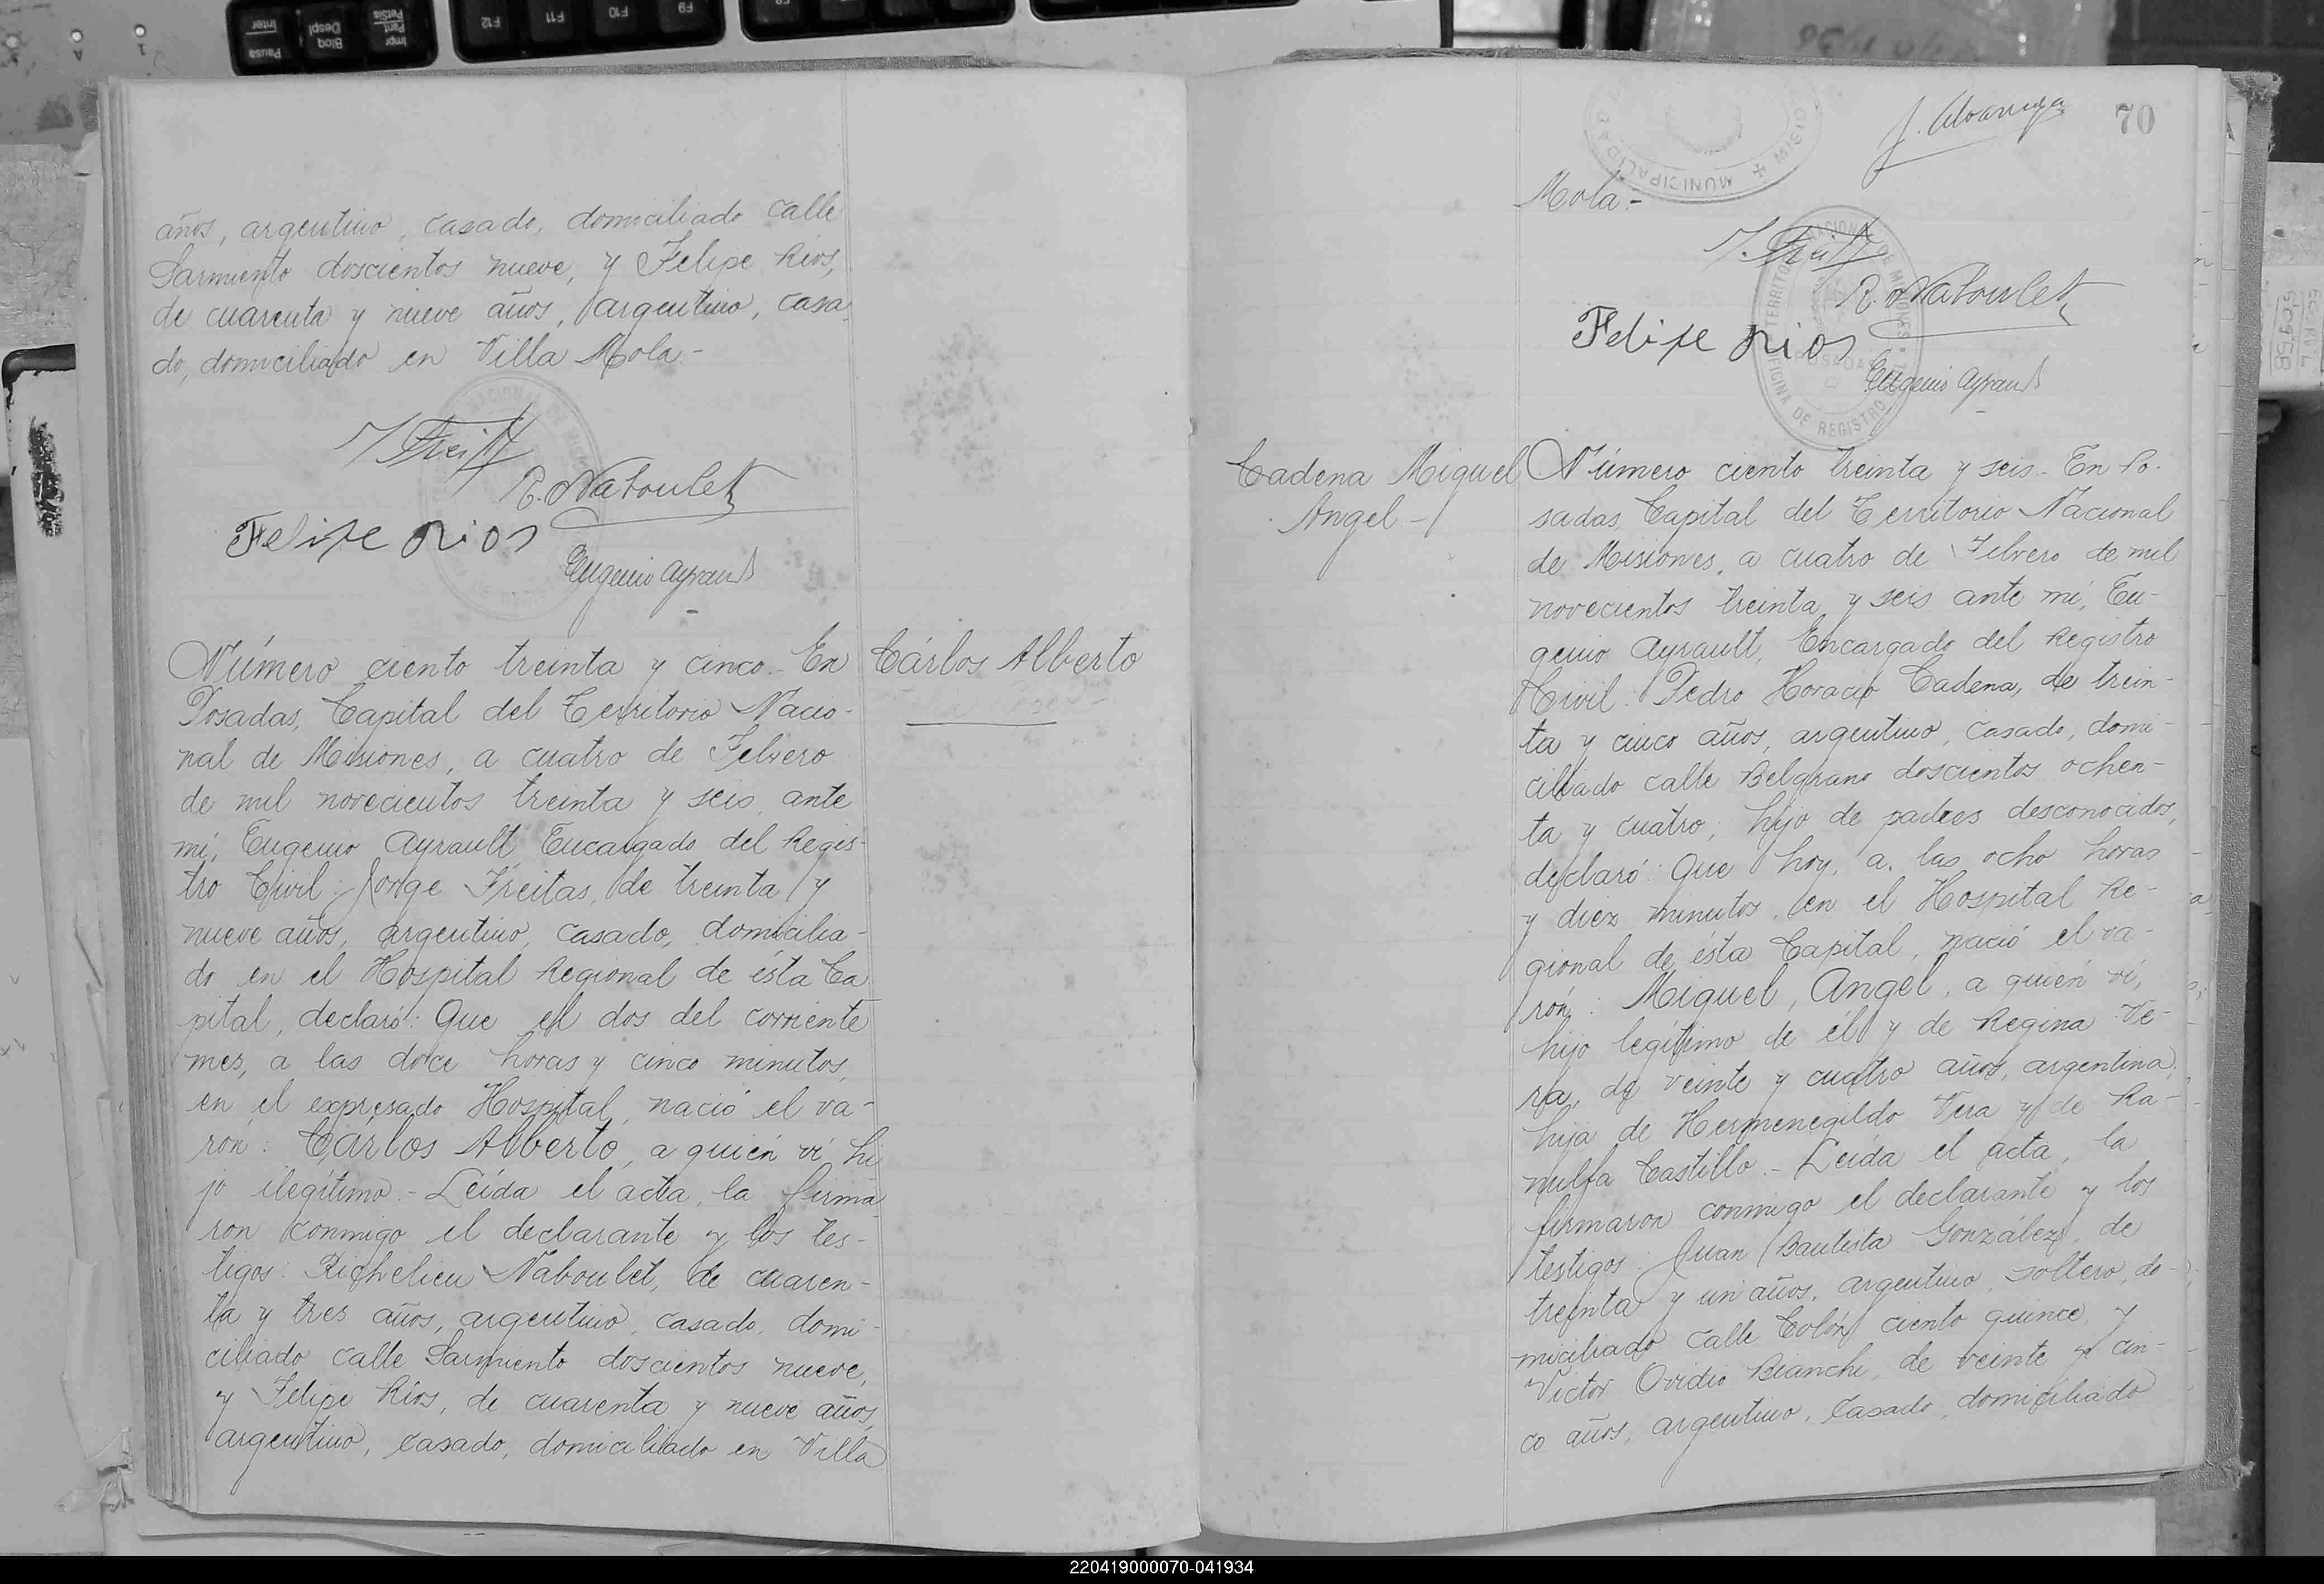 Pausa
Inter
Bloq
Despl
Impr
Pant
PetSis
F12
F11
F10
F9
años, argentino, casado, domiciliado calle
Sarmiento doscientos nueve, y Felipe Rios,
de cuarenta y nueve años, argentino, casa
do, domiciliado en Villa Mola.-
J Freitas
R. Naboulet
Felipe Rios
Eugenio Ayrault
Número ciento treinta y cinco.- En
Posadas, Capital del Territorio Nacio-
nal de Misiones, a cuatro de Febrero
de mil novecientos treinta y seis, ante
mí, Eugenio Ayrault, Encargado del Regis-
tro Civil: Jorge Freitas, de treinta y
nueve años, argentino, casado, domicilia-
do en el Hospital Regional de ésta Ca
pital, declaró: Que el dos del corriente
mes, a las doce horas y cinco minutos,
en el expresado Hospital, nació el va-
rón: Cárlos Alberto, a quién ví, hi
jo ilegítimo.- Leída el acta, la firma
ron conmigo el declarante y los tes-
tigos: Richelieu Naboulet, de cuaren-
ta y tres años, argentino, casado, domi-
ciliado calle Sarmiento doscientos nueve,
y Felipe Ríos, de cuarenta y nueve años,
argentino, casado, domiciliado en Villa
Cárlos Alberto
70
MUNICIPALIDAD
Mola.-
J. Freitas
R. Naboulet
Felipe Rios
Eugenio Ayrault
OFICINA DE REGISTRO
POSADAS
Cadena Miguel
Angel.-
Número ciento treinta y seis.- En Po-
sadas, Capital del Territorio Nacional
de Misiones, a cuatro de Febrero de mil
novecientos treinta y seis ante mí, Eu-
genio Ayrault, Encargado del Registro
Civil: Pedro Horacio Cadena, de trein-
ta y cinco años, argentino, casado, domi-
ciliado calle Belgrano doscientos ochen-
ta y cuatro, hijo de padres desconocidos,
declaró: Que hoy, a las ocho horas
y diez minutos, en el Hospital Re-
gional de ésta Capital, nació el va-
rón: Miguel, Angel, a quién ví,
hijo legítimo de él y de Regina Ve-
ra, de veinte y cuatro años, argentina,
hija de Hermenegildo Vera y de Ra-
nulfa Castillo.- Leída el acta, la
firmaron conmigo el declarante y los
testigos: Juan Bautista González, de
treinta y un años, argentino, soltero, do-
miciliado calle Colón ciento quince, y
Victor Ovidio Bianchi, de veinte y cin-
co años, argentino, casado, domiciliado
220419000070-041934